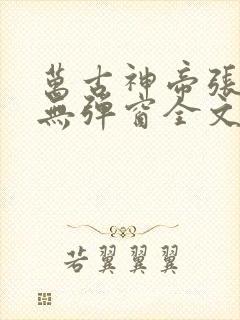 萬古神帝張
無彈窗全文
若翼翼翼